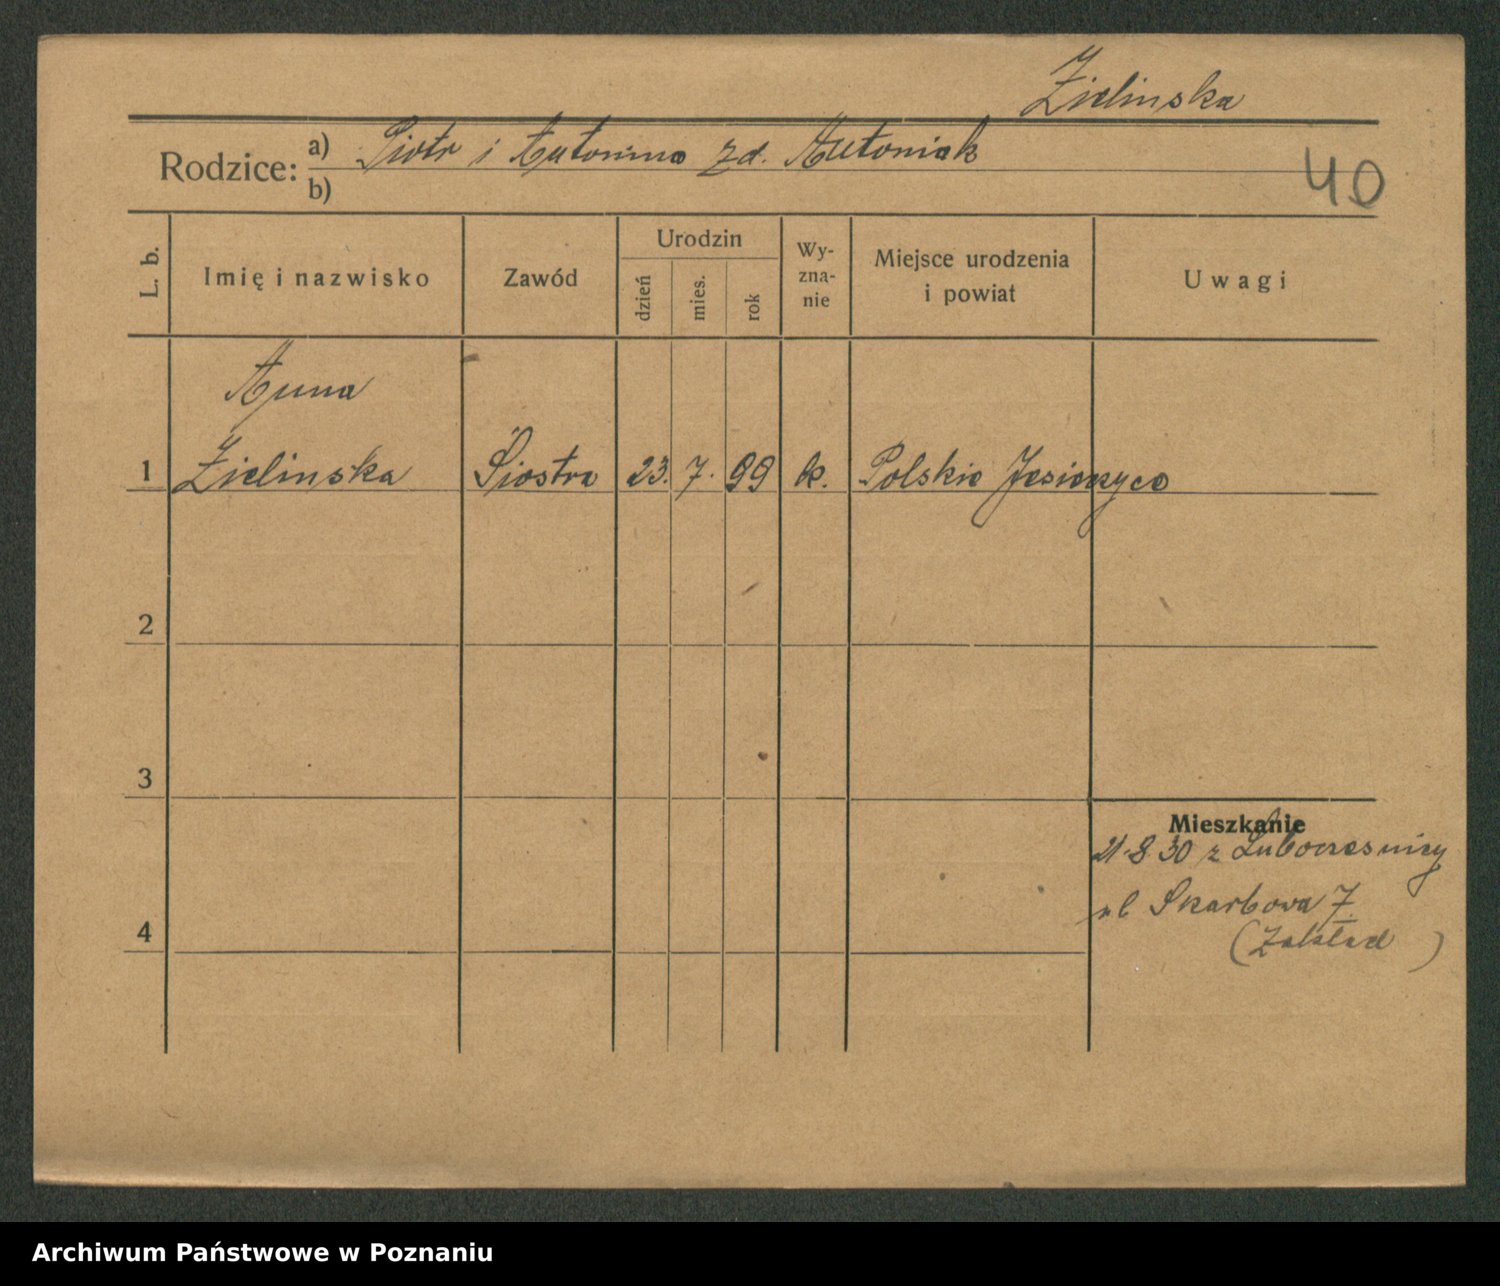 Zielinska
Rodzice: a) Piotr i Antonina zd. Antoniak
b)
40
L. b.
Imię i nazwisko
Zawód
Urodzin
dzień
mies.
rok
Wy-
zna-
nie
Miejsce urodzenia
i powiat
Uwagi
Anna
1 Zielinska Siostra 23. 7. 99 k. Polskie
2
3
4
Mieszkanie
21.8 30 z
ul Skarbowa 7
(Zakład )
Archiwum Państwowe w Poznaniu